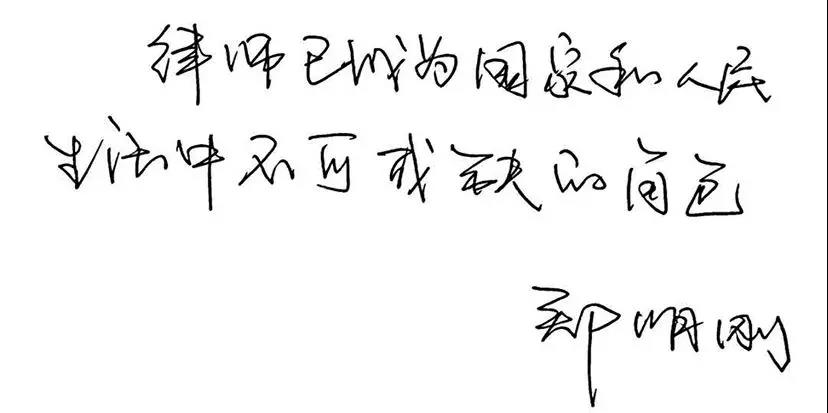 律师已成为国家和人民
生活中不可或缺的角色
郑明刚